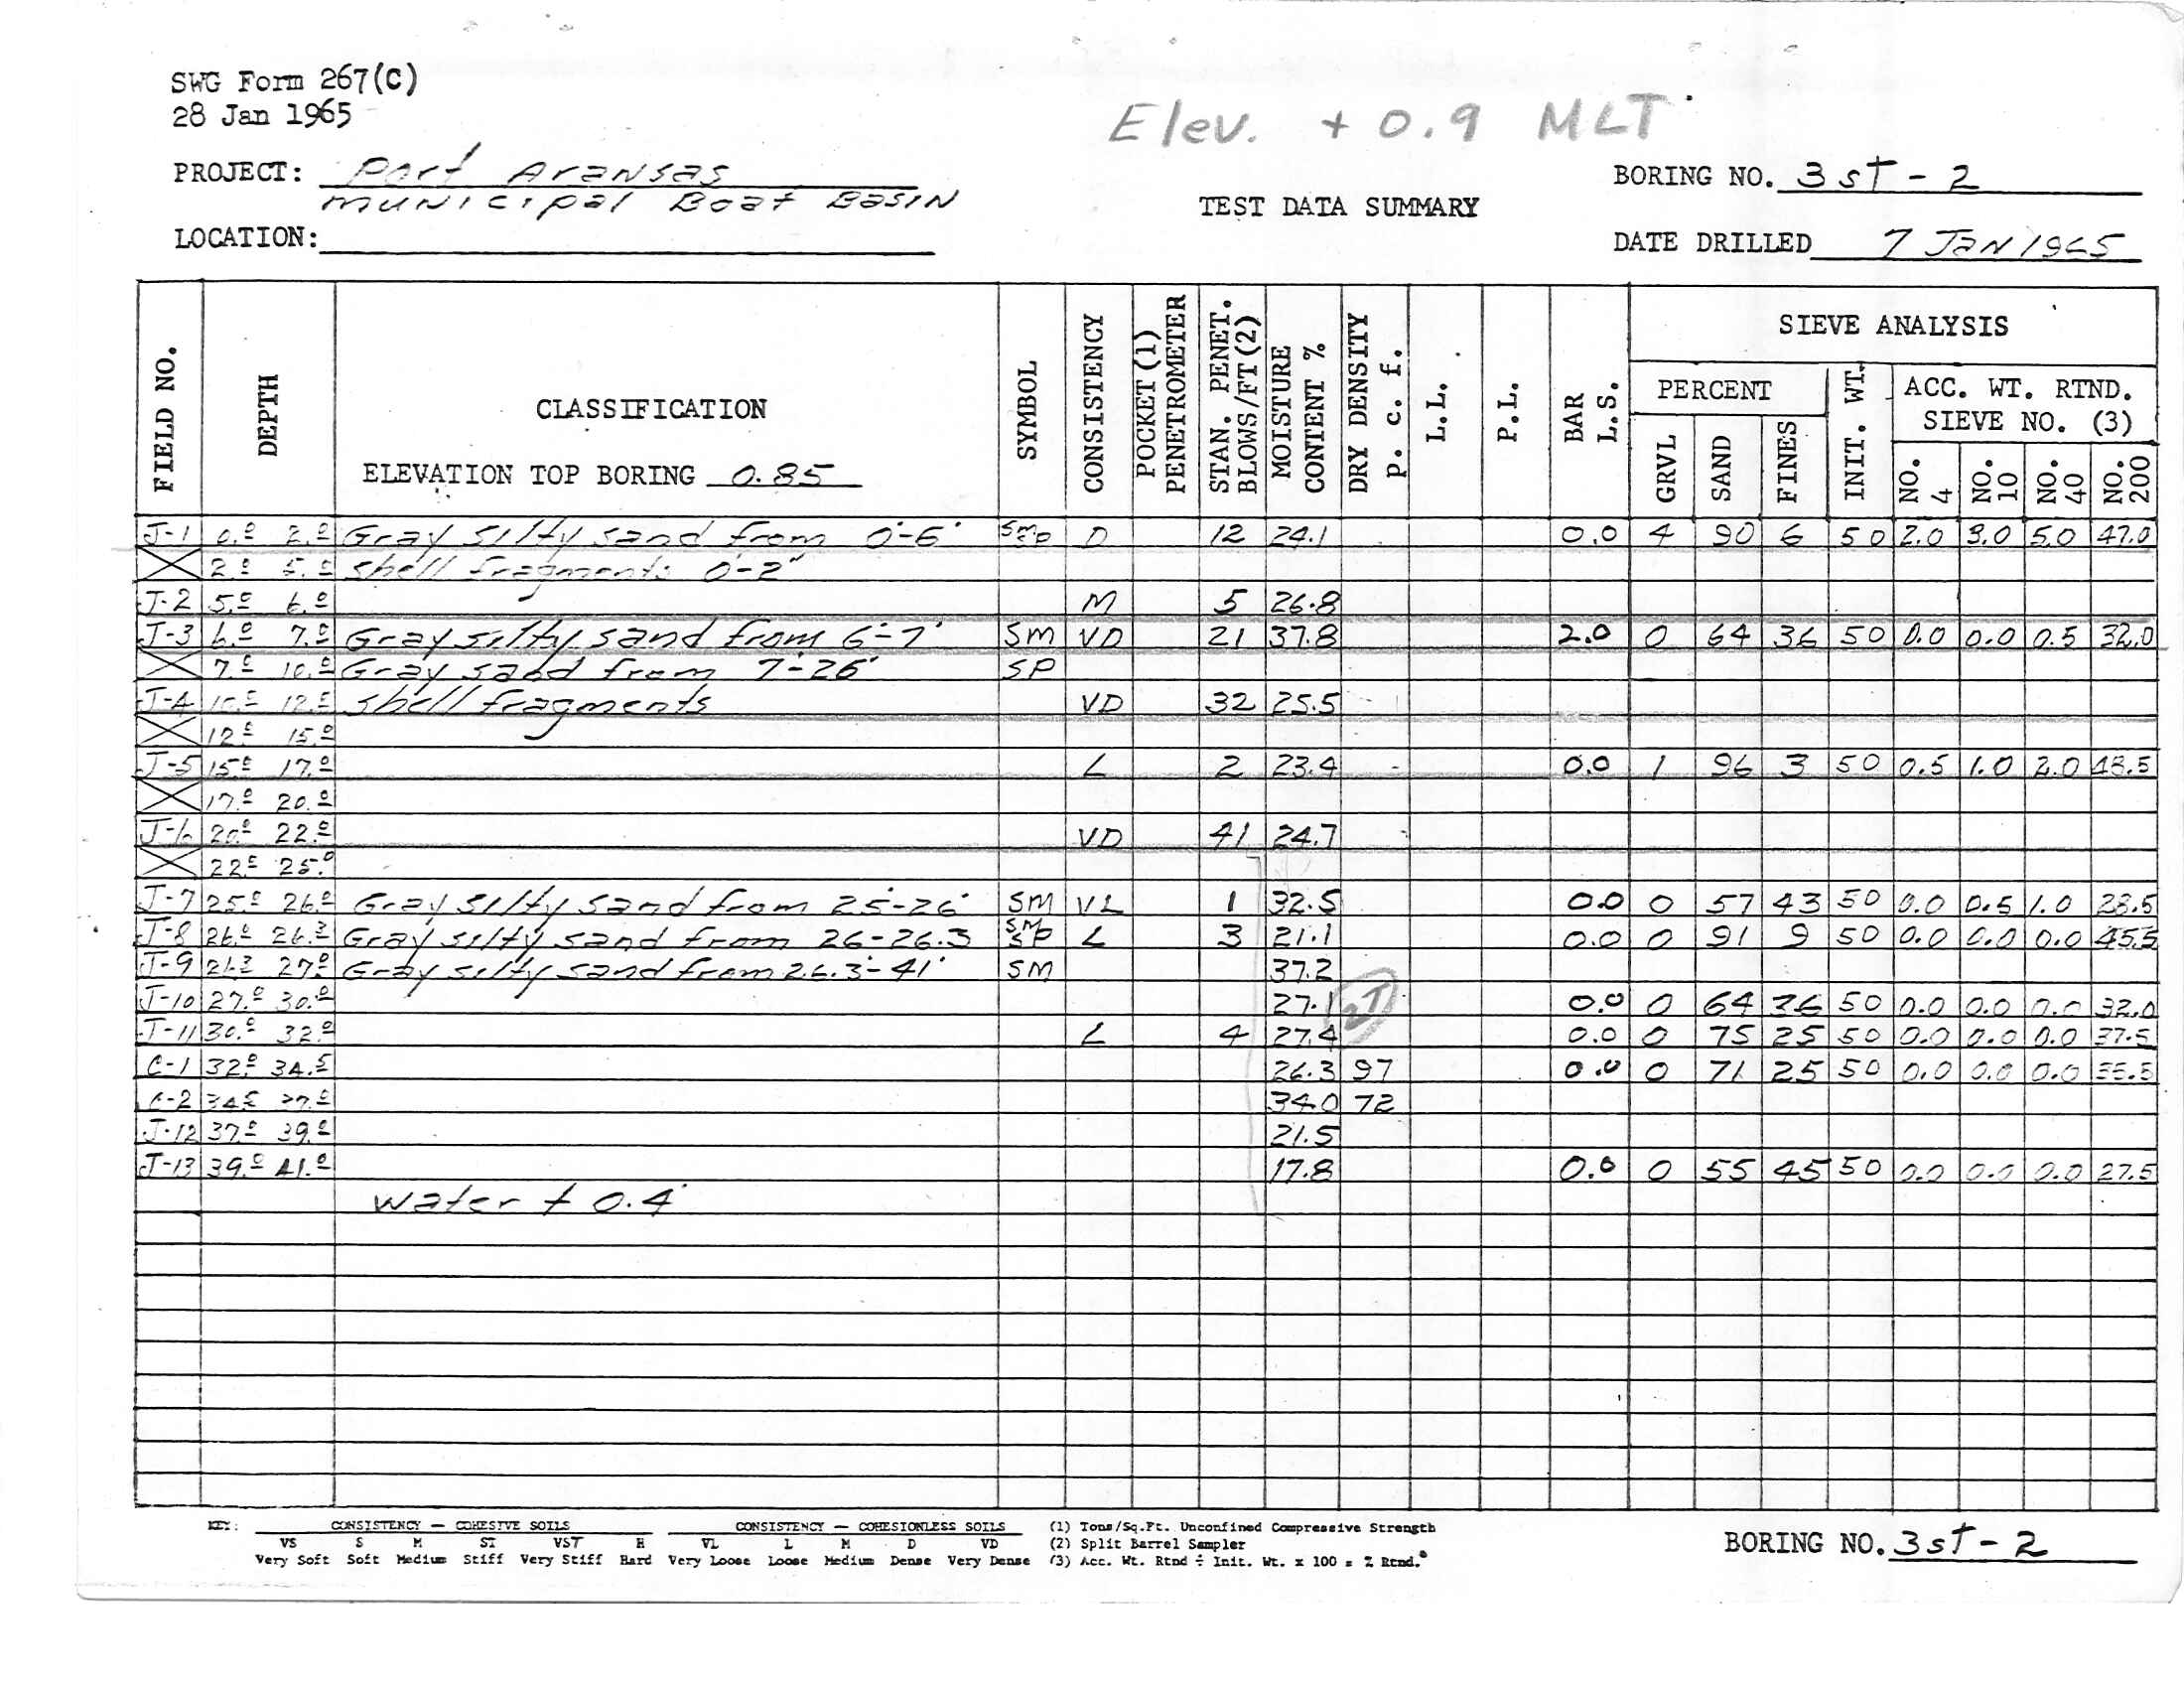 SWG Form 267(C)
28 Jan 1965
Elev. + 0.9 MLT
PROJECT: Port Aransas
Municipal Boat Basin
BORING NO. 3st-2
TEST DATA SUMMARY
LOCATION:
DATE DRILLED 7 JAN 1965
FIELD NO. DEPTH CLASSIFICATION SYMBOL CONSISTENCY POCKET (1) PENETROMETER STAN. PENET. BLOWS/FT (2) MOISTURE CONTENT % DRY DENSITY p. c. f. L.L. P.L. BAR L.S. SIEVE ANALYSIS
PERCENT INIT. WT. ACC. WT. RTND. SIEVE NO. (3)
ELEVATION TOP BORING 0.85
GRVL SAND FINES NO. 4 NO. 10 NO. 40 NO. 200
J-1 0.0 2.0 Gray silty sand from 0-6' D 12 24.1 0.0 4 90 6 50 2.0 3.0 5.0 47.0
2.0 5.0 shell fragments 0-2"
J-2 5.0 6.0 M 5 26.8
J-3 6.0 7.0 Gray silty sand from 6-7' SM VD 21 37.8 2.0 0 64 36 50 0.0 0.0 0.5 32.0
7.0 10.0 Gray sand from 7-26' SP
J-4 10.0 12.0 shell fragments VD 32 25.5
12.0 15.0
J-5 15.0 17.0 L 2 23.4 0.0 1 96 3 50 0.5 1.0 2.0 48.5
17.0 20.0
J-6 20.0 22.0 VD 41 24.7
22.0 25.0
J-7 25.0 26.0 Gray silty sand from 25-26' SM VL 1 32.5 0.0 0 57 43 50 0.0 0.5 1.0 28.5
J-8 26.0 26.3 Gray silty sand from 26-26.3 SM SP L 3 21.1 0.0 0 91 9 50 0.0 0.0 0.0 45.5
J-9 26.3 27.0 Gray silty sand from 26.3-41' SM 37.2
J-10 27.0 30.0 27.1 2T 0.0 0 64 36 50 0.0 0.0 0.0 32.0
J-11 30.0 32.0 L 4 27.4 0.0 0 75 25 50 0.0 0.0 0.0 37.5
C-1 32.0 34.5 26.3 97 0.0 0 71 25 50 0.0 0.0 0.0
C-2 34.5 37.0 34.0 72
J-12 37.0 39.0 21.5
J-13 39.0 41.0 17.8 0.0 0 55 45 50 0.0 0.0 0.0 27.5
water + 0.4'
KEY: CONSISTENCY — COHESIVE SOILS CONSISTENCY — COHESIONLESS SOILS (1) Tons/Sq.Ft. Unconfined Compressive Strength
VS S M ST VST H VL L M D VD (2) Split Barrel Sampler
Very Soft Soft Medium Stiff Very Stiff Hard Very Loose Loose Medium Dense Very Dense (3) Acc. Wt. Rtnd ÷ Init. Wt. x 100 = % Rtnd.
BORING NO. 3st-2